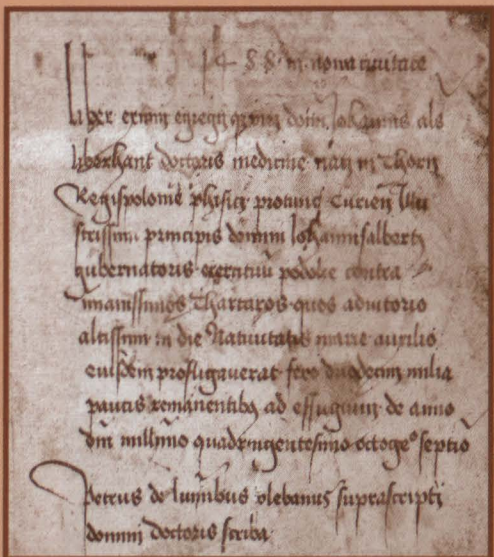 1488 in nova civitate
Liber eximii egregii viri domi Johannis als
liberhant doctoris medicine nati in Thorn
Regis polonie phisici protunc curien Illu
strissimi principis domini Johannis alberti
gubernatoris exercituu podolie contra
imanissimos Thartaros quos adiutorio
altissimi in die Nativitatis marie auxilio
eiusdem profligaverat fere duodecim milia
paucis remanentibq ad effugium de anno
dni millimo quadringentesimo octogeo septio
Petrus de lumbus plebanus suprascripti
domini doctoris scriba